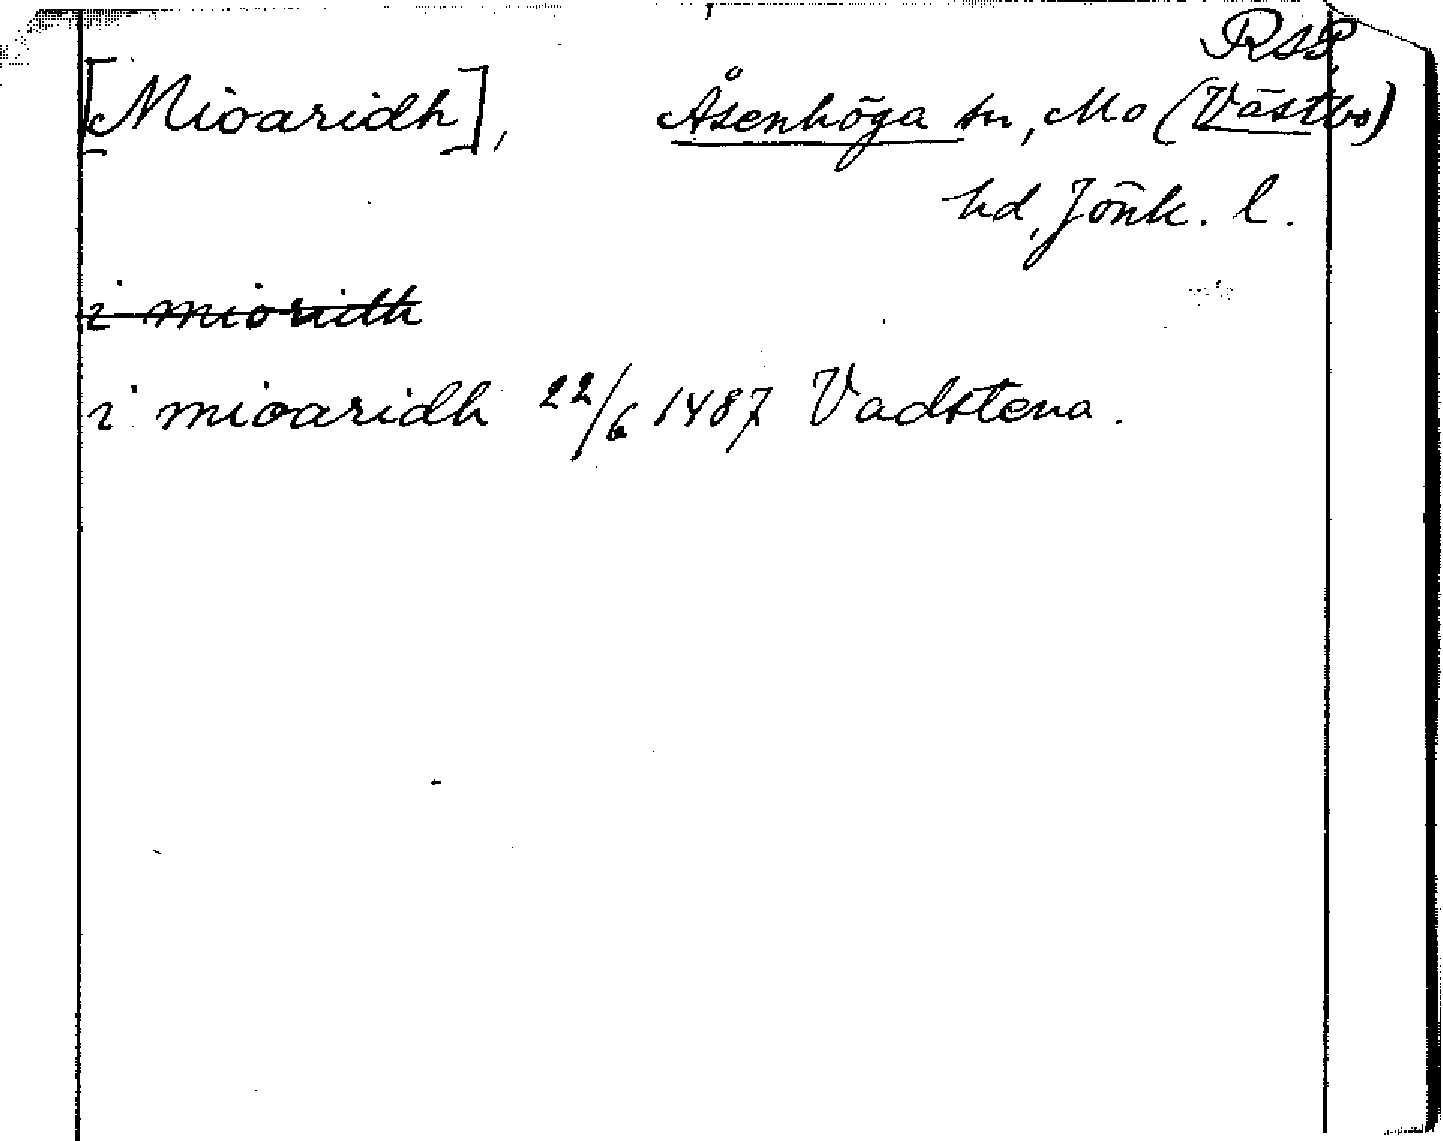 RAP.
[Mioaridh], Åsenhöga sn, Mo (Västbo)
hd, Jönk. l.
i mioridh
i mioaridh 22/6 1487 Vadstena.